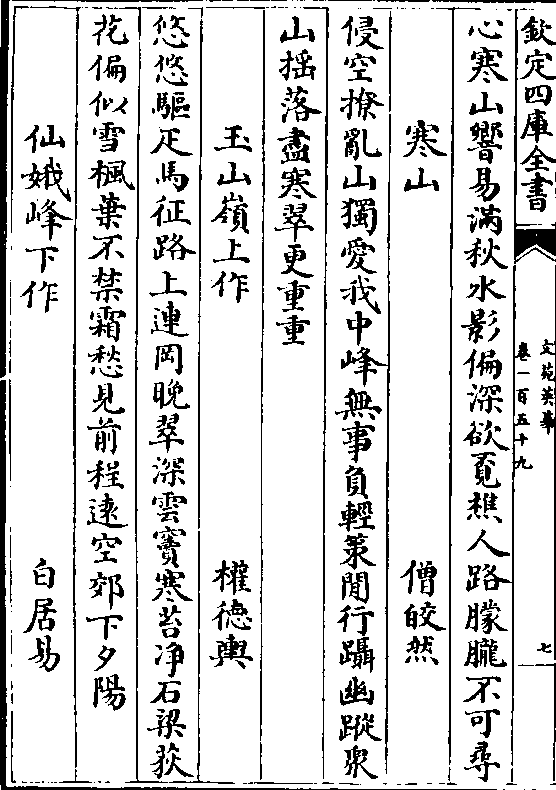 欽定四庫全書
文苑英華
卷一百五十九
七
心寒山響易滿秋水影偏深欲覓樵人路朦朧不可尋
寒山 僧皎然
侵空撩亂山獨愛我中峰無事負輕策閒行躡幽蹤衆
山揺落盡寒翠更重重
玉山嶺上作 權德輿
悠悠驅疋馬征路上連岡晚翠深雲竇寒苔净石梁荻
花偏似雪楓葉不禁霜愁見前程逺空郊下夕陽
仙娥峰下作 白居易